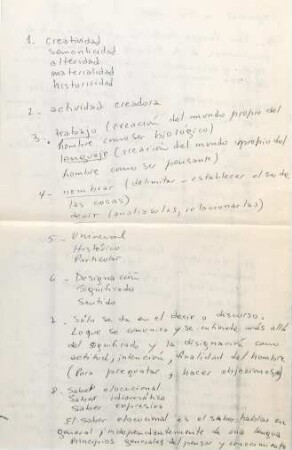 1. creatividad
semanticidad
alteridad
materialidad
historicidad
2. actividad creadora
3. trabajo (creación del mundo propio del
hombre como ser biológico)
lenguaje (creación del mundo propio del
hombre como ser pensante)
4 - nombrar (delimitar - establecer el ser de
las cosas)
decir (analizarlas, relacionarlas)
5 - Universal
Histórico
Particular
6 - Designación
Significado
Sentido
7. Sólo se da en el decir o discurso.
Lo que se comunica y se entiende más allá
del significado y la designación como
actitud, intención, finalidad del hombre
(Para preguntar, hacer objeciones)
8. Saber elocucional
Saber idiomático
Saber expresivo
El saber elocucional es el saber hablar en
general, independientemente de una lengua
Principios generales del pensar y conocimiento